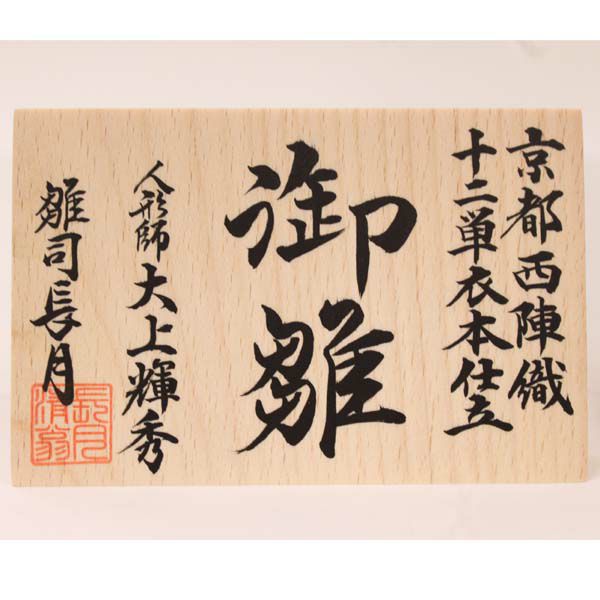 京都西陣織
十二単衣本仕立
御雛
人形師 大上輝秀
雛司長月